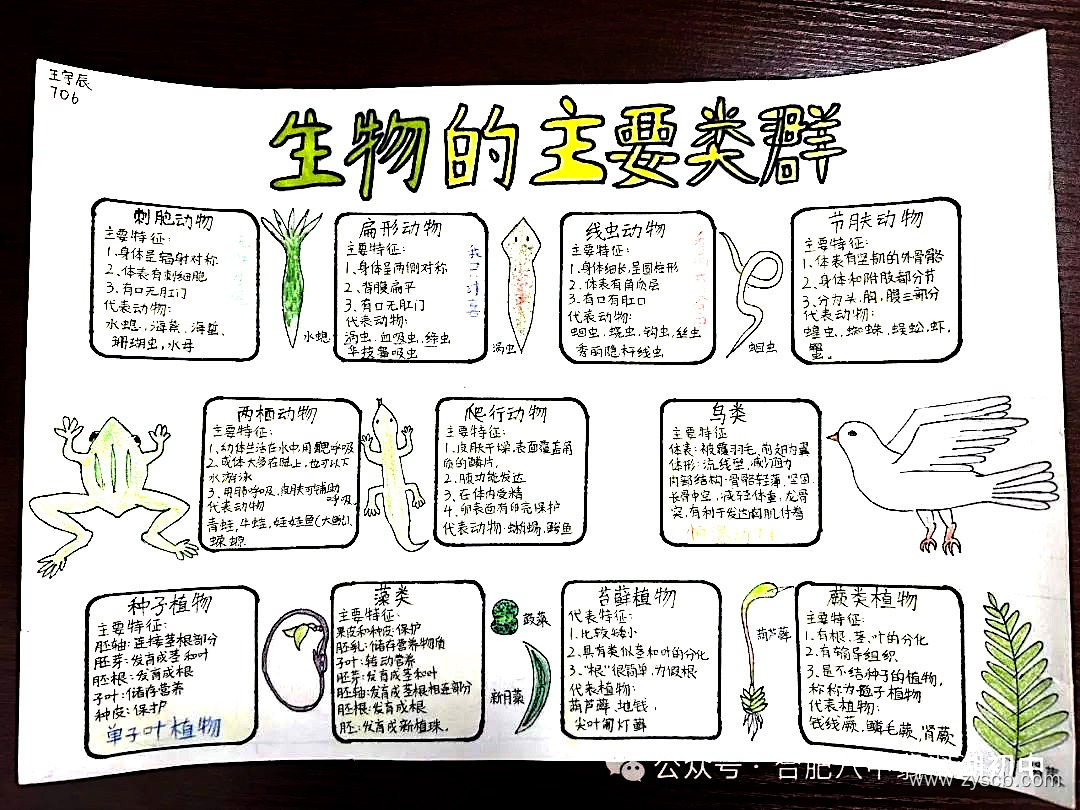 王宇辰
706
生物的主要类群
刺胞动物
主要特征:
1.身体呈辐射对称
2.体表有刺细胞
3.有口无肛门
代表动物:
水螅、海葵、海蜇、
珊瑚虫,水母
水螅
扁形动物
主要特征:
1.身体呈两侧对称
2.背腹扁平
3.有口无肛门
代表动物:
涡虫、血吸虫、绦虫
华枝睾吸虫
涡虫
线虫动物
主要特征:
1.身体细长,呈圆柱形
2.体表有角质层
3.有口有肛门
代表动物:
蛔虫、蛲虫、钩虫、丝虫
秀丽隐杆线虫
蛔虫
节肤动物
主要特征:
1.体表有坚韧的外骨骼
2.身体和附肢都分节
3.分为头,胸,腹三部分
代表动物:
蝗虫、蜘蛛、蜈蚣、虾、
蟹。
两栖动物
主要特征:
1.幼体生活在水中用鳃呼吸
2.成体大多在陆上,也可以下
水游泳
3.用肺呼吸,皮肤可辅助
呼吸
代表动物
青蛙,牛蛙,娃娃鱼(大鲵)、
蝾螈
爬行动物
主要特征:
1.皮肤干燥,表面覆盖角
质的鳞片,
2.肢功能发达
3.在体内受精
4.卵表面有卵壳保护
代表动物:蜥蜴、鳄鱼
鸟类
主要特征
体表:被覆羽毛,前肢为翼
体形:流线型,减少阻力
内部结构:骨骼轻薄,坚固,
长骨中空,减轻体重,龙骨
突,有利于发达胸肌付着
种子植物
主要特征:
胚轴:连接茎根部分
胚芽:发育成茎和叶
胚根:发育成根
子叶:储存营养
种皮:保护
单子叶植物
藻类
主要特征:
果皮和种皮:保护
胚乳:储存营养物质
子叶:转动营养
胚芽:发育成茎和叶
胚轴:发育成茎根相连部分
胚根:发育成根
胚:发育成新植株.
新月藻
苔藓植物
代表特征:
1.比较矮小
2.具有类似茎和叶的分化
3."根"很简单,为假根
代表植物:
葫芦藓、地钱、
尖叶葡灯藓
葫芦藓
蕨类植物
主要特征:
1.有根、茎、叶的分化
2.有输导组织
3.是不结种子的植物,
称称为孢子植物
代表植物:
铁线蕨,鳞毛蕨,肾蕨
公众号·合肥八中
www.zyscb.com